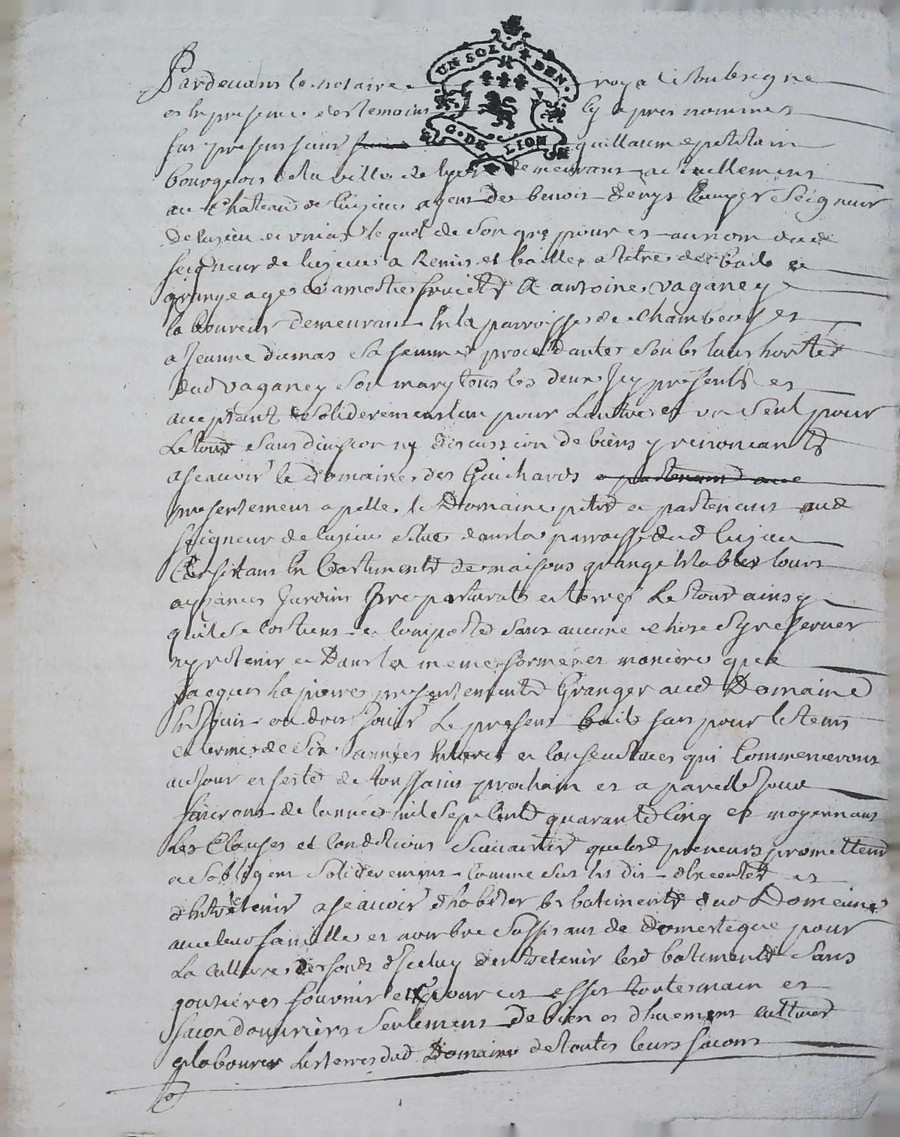 UN SOL DEN.
G. DE LION
Pardevant le notaire royal soubsigne
et en presence des temoins cy apres nommes
fut present sieur guillaume
bourgeois de la ville de lyon demeurant actuellement
au Chateau de Luzieu agent de benoit denys Seigneur
de Luzieu et le quel de son gre pour et au nom dud
seigneur de luzieu a Remis et bailhe a titre de bail a
grangeage a moitie fruicts A antoine vaganey
laboureur demeurant En la parroisse de Chambeuf et
a Jeanne dumas sa femme procedante soubs l'autorité
dud vaganey son mary tous les deux Icy presents et
acceptant solidairement l'un pour L'autre et un seul pour
Le tout sans division ny discussion de biens y renoncants
ascavoir le domaine des Guichards apartenant
presentement apellé le Domaine petit apartenant aud
seigneur de luzieu situé dans la parroisse dud luzieu
Consistant En Bastiments de maisons grange Etables cours
aysances Jardins Pre pasturals et terres Le tout ainsy
qu'il se contient et comporte sans aucune chose sy reserver
ny retenir et Dans la meme forme et maniere que
Jacques presentement Granger aud Domaine
En Jouit ou doit Jouir Le present bail fait pour le tems
et terme de six années entieres et consecutives qui Commenceront
au Jour et feste de toussains prochain et a pareil Jour
finiront de l'année mil sept Cent quarante Cinq et moyennant
Les Clauses et Conditions Suivantes que les preneurs promettent
et s'obligent solidairement comme sus est dit d'executer et
d'entretenir ascavoir d'habiter les batiments dud Domaine
avec leur famille et nombre suffisant de domestique pour
La culture des fonds d'Iceluy d'entretenir lesd batiments sans
goutieres fournir pour cet effet toutes main et
facon d'ouvriers seulement de bien et duement cultiver
labourer Les terres dud Domaine de toutes leurs facons